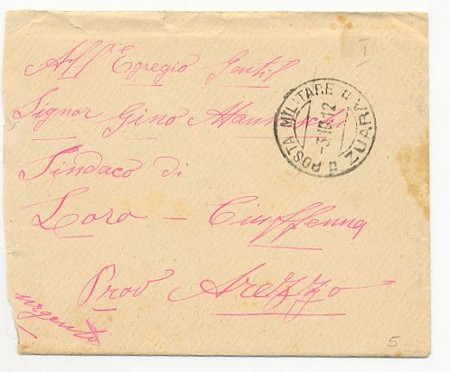 All' Egregio Gentil
Signor Gino
Sindaco di
Loro - Ciuffenna
Prov Arezzo
urgente
POSTA MILITARE ZUARA
12
I
5